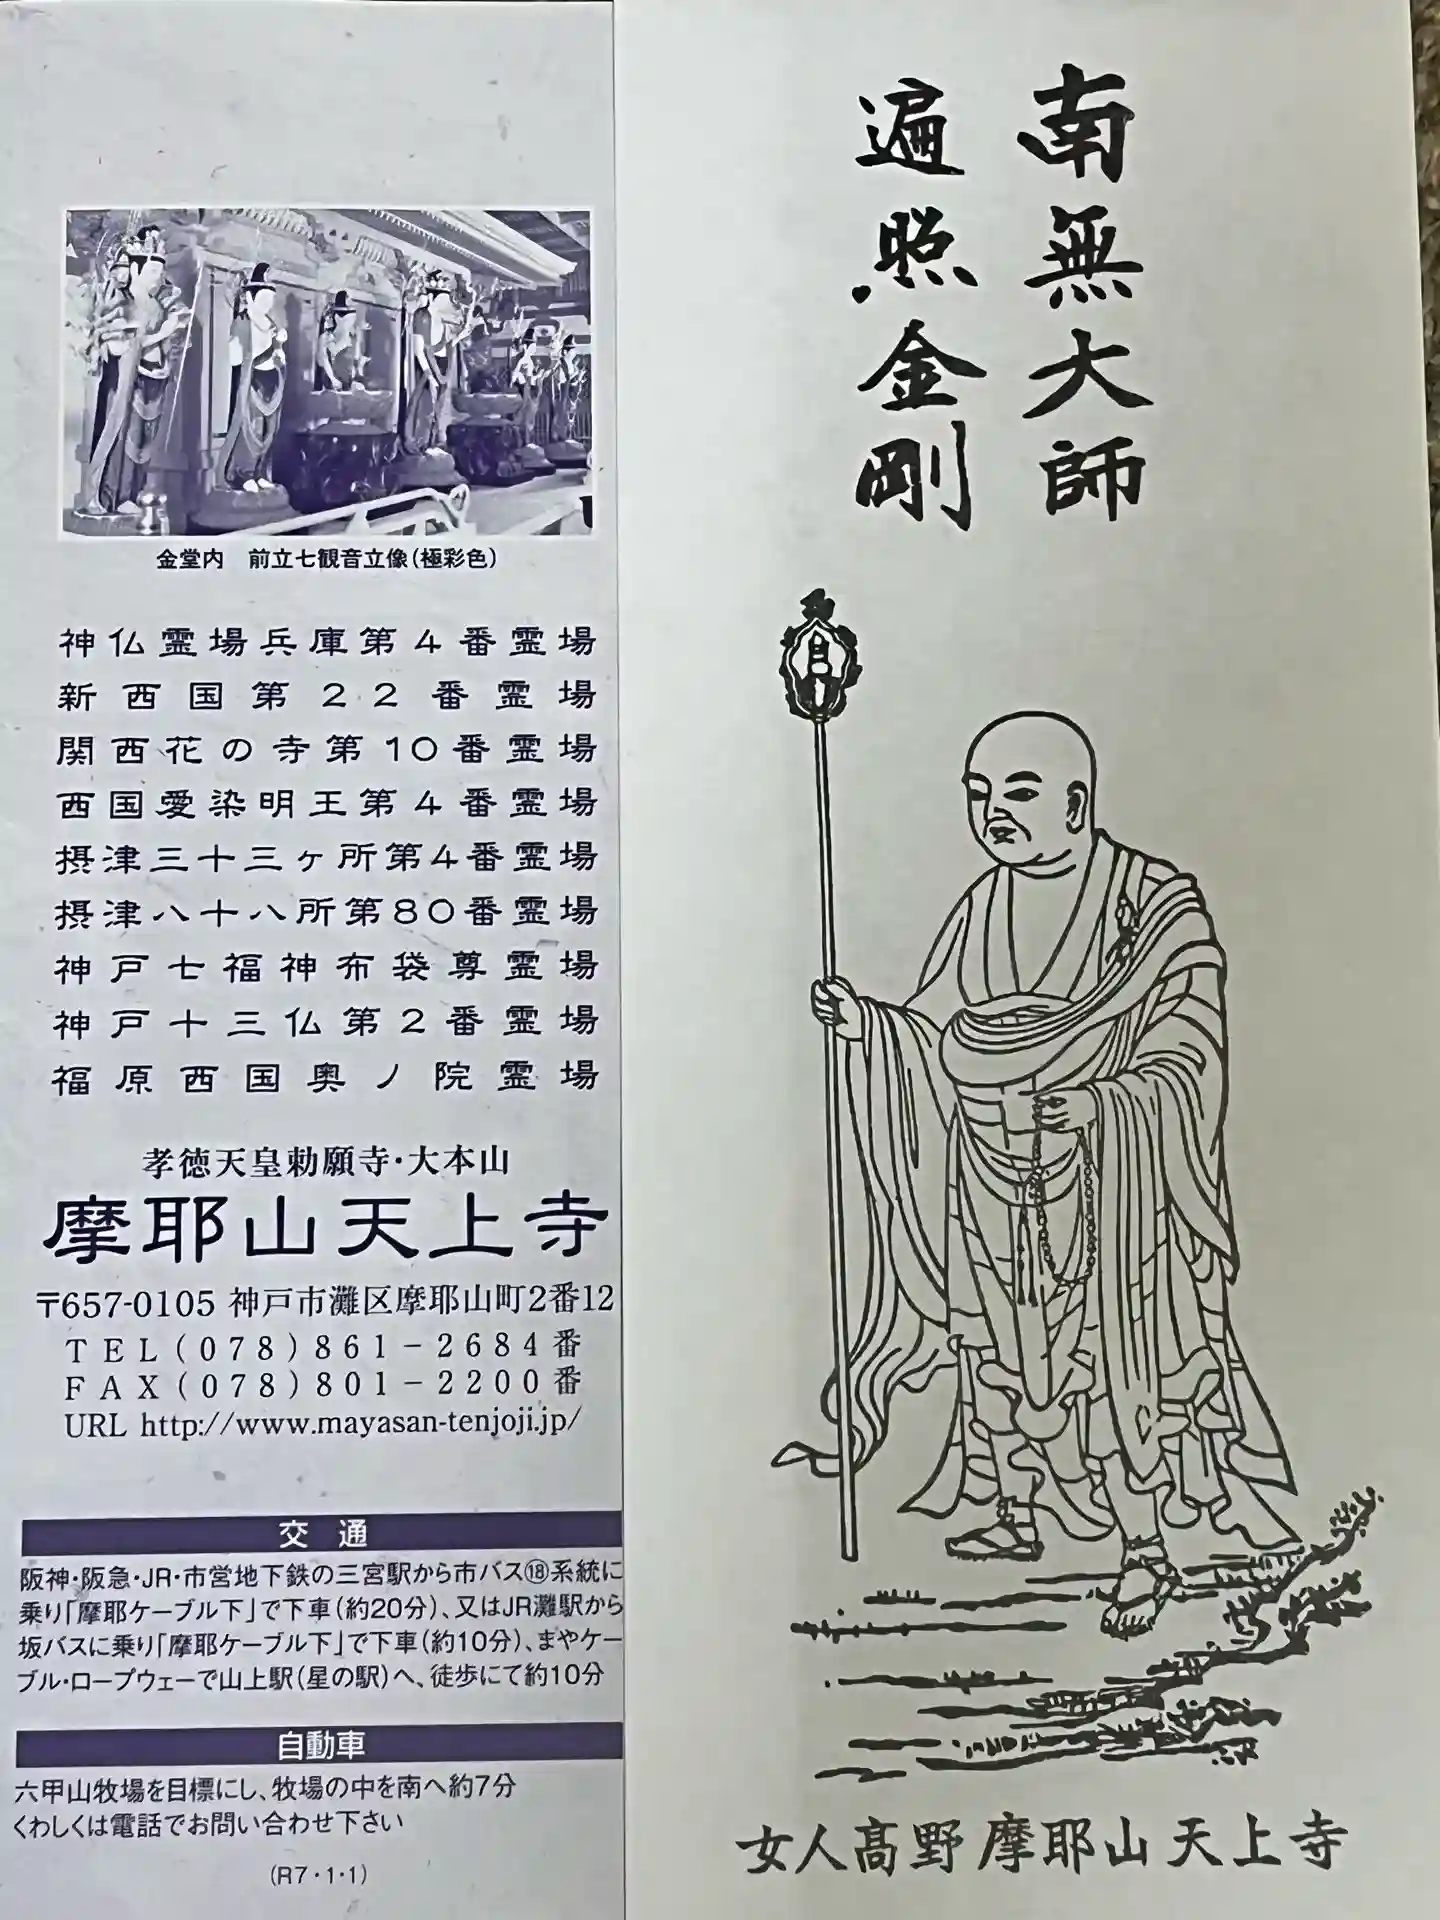 金堂内　前立七観音立像（極彩色）
神仏霊場兵庫第4番霊場
新西国第22番霊場
関西花の寺第10番霊場
西国愛染明王第4番霊場
摂津三十三ヶ所第4番霊場
摂津八十八所第80番霊場
神戸七福神布袋尊霊場
神戸十三仏第2番霊場
福原西国奥ノ院霊場
孝徳天皇勅願寺・大本山
摩耶山天上寺
〒657-0105 神戸市灘区摩耶山町2番12
TEL(078)861-2684番
FAX(078)801-2200番
URL http://www.mayasan-tenjoji.jp/
交通
阪神・阪急・JR・市営地下鉄の三宮駅から市バス⑱系統に
乗り「摩耶ケーブル下」で下車（約20分）、又はJR灘駅から
坂バスに乗り「摩耶ケーブル下」で下車（約10分）、まやケー
ブル・ロープウェーで山上駅（星の駅）へ、徒歩にて約10分
自動車
六甲山牧場を目標にし、牧場の中を南へ約7分
くわしくは電話でお問い合わせ下さい
（R7・1・1）
南無大師
遍照金剛
女人高野 摩耶山天上寺